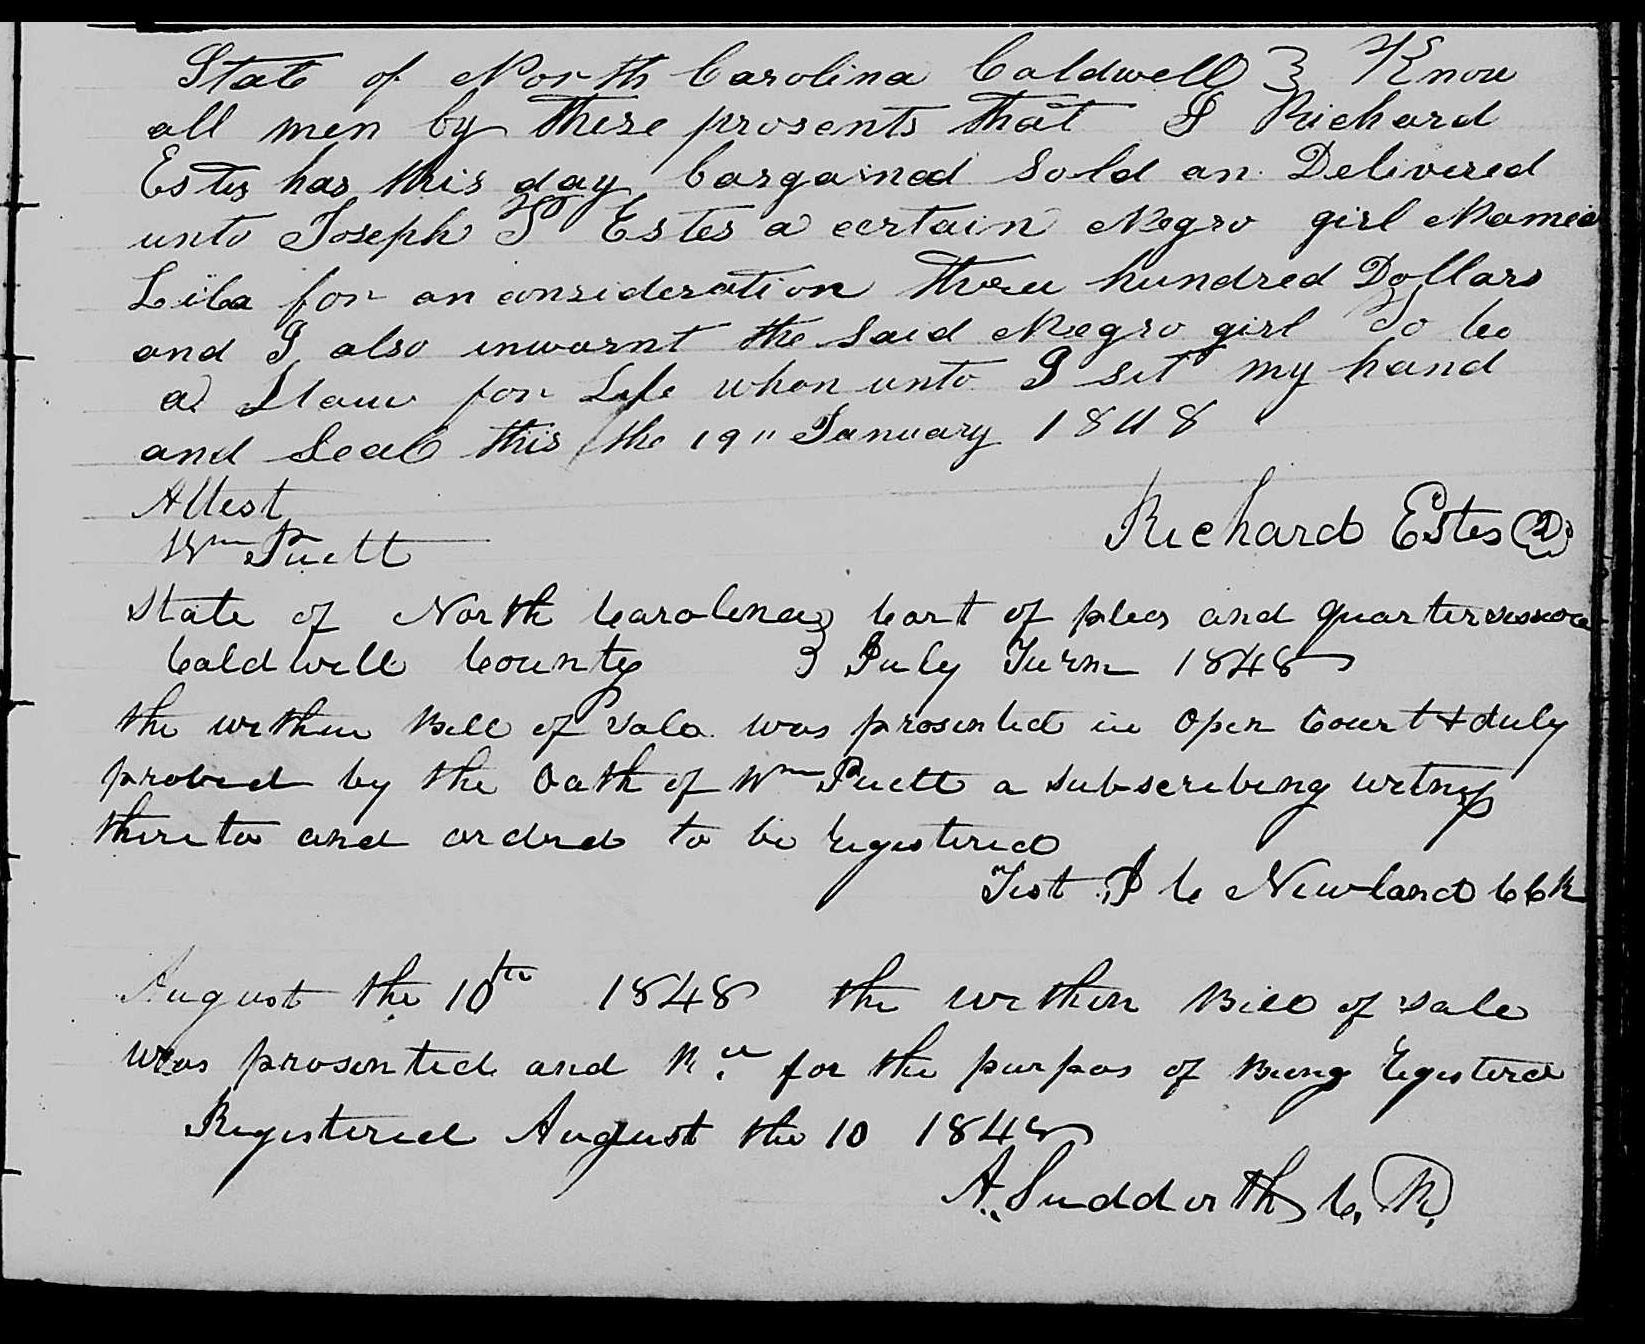 State of North Carolina Caldwell } Know
all men by these prosents that I Richard
Estes has this day bargained Sold an Delivered
unto Joseph T Estes a certain Negro girl Named
Lila for an consideration three hundred Dollars
and I also inwarnt the Said Negro girl To be
a Slave for Life when unto I set my hand
and Seal this the 19" January 1848
Attest
Wm Puett
Richard Estes
State of North Carolina } Cort of pleas and quarter sessions
Caldwell County } July Turm 1848
the within Bill of Sale was prosented in Open Court & duly
proved by the Oath of Wm Puett a subscribing witness
thereto and ordred to be Registered
Test J C Newland CCk
August the 10th 1848 the within Bill of Sale
was prosented and Rcd for the purpos of Being Registered
Registered August the 10 1848
A. Suddorth C. R.